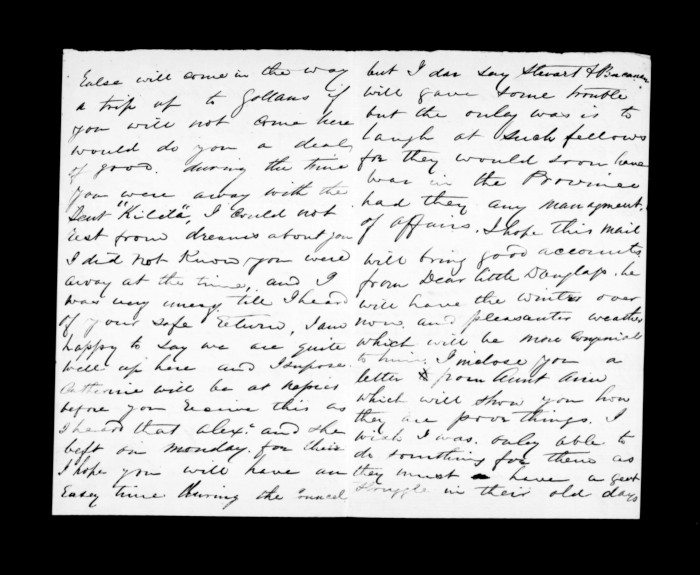 Ealse will come in the way
a trip up to Gollans if
you will not come here
would do you a deal
of good. during the time
you were away with the
Sent "Kileta", I could not
Rest from dreams about you
I did not Know you were
away at the time, and I
was very uneasy till I heard
of your safe return, I am
happy to say we are quite
well up here and I supose
Catherine will be at Napier
before you Receive this as
I heard that Alex.r and she
left on monday. for their
I hope you will have an
Easey time During the Councel
but I dar say Stevart &
will gave some trouble
but the onley was is to
laugh at such fellows
for they would soon have
War in the Province
had they any managment.
of affairs. I hope this mail
will bring good accounts
from Dear little Douglass. he
will have the winter over
now, and pleasanter weather
which will be more congenial
to him. I inclose you a
letter from Aunt Ann
which will show you how
they are poor things. I
wish I was. onley able to
do something for them as
they must have a great
struggle in their old days